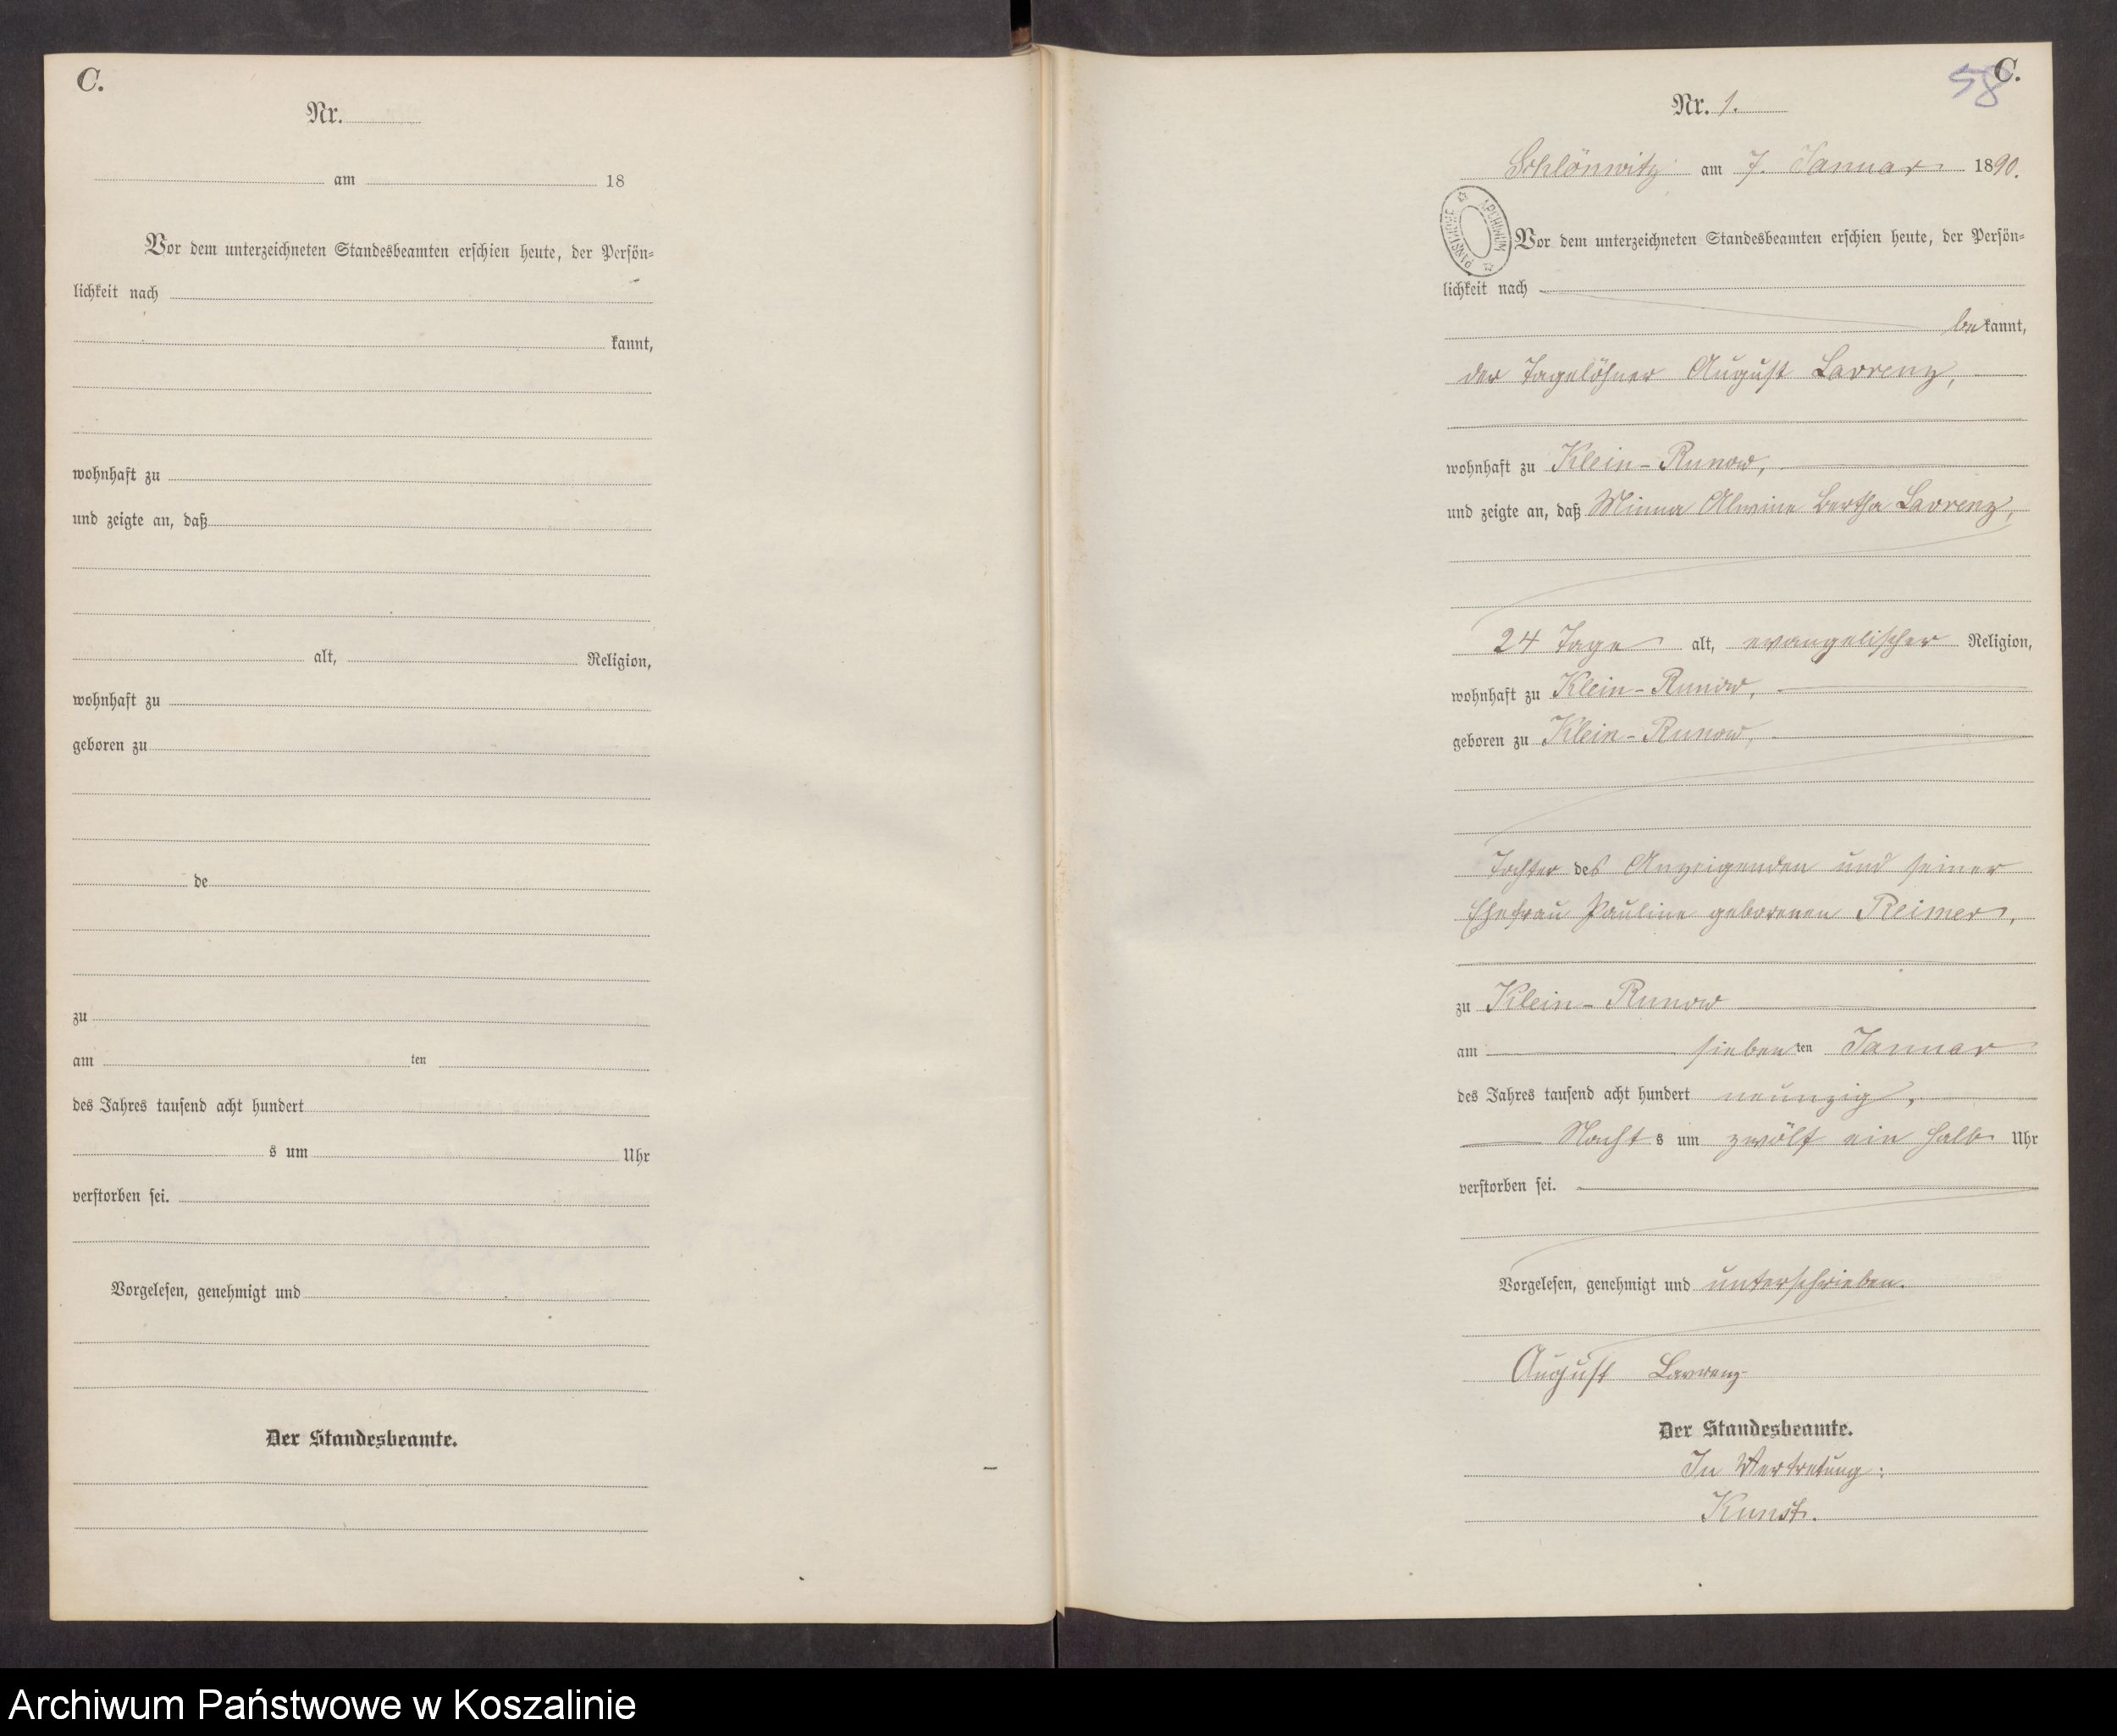 C.
Nr.
am 18
Vor dem unterzeichneten Standesbeamten erschien heute, der Persön-
lichkeit nach
kannt,
wohnhaft zu
und zeigte an, daß
alt, Religion,
wohnhaft zu
geboren zu
de
zu
am ten
des Jahres tausend acht hundert
s um Uhr
verstorben sei.
Vorgelesen, genehmigt und
Der Standesbeamte.
58 C.
Nr. 1.
Schlönwitz am 7. Januar 1890.
ARCHIWUM PAŃSTWOWE
Vor dem unterzeichneten Standesbeamten erschien heute, der Persön-
lichkeit nach
bekannt,
der Tagelöhner August Lavrenz,
wohnhaft zu Klein-Runow,
und zeigte an, daß Minna Alwine Bertha Lavrenz,
24 Tage alt, evangelischer Religion,
wohnhaft zu Klein-Runow,
geboren zu Klein-Runow,
Tochter des Anzeigenden und seiner
Ehefrau Pauline geborenen Reimer,
zu Klein-Runow
am siebenten Januar
des Jahres tausend acht hundert neunzig,
Nachts um zwölf ein halb Uhr
verstorben sei.
Vorgelesen, genehmigt und unterschrieben.
August Lavrenz
Der Standesbeamte.
In Vertretung:
Kunst.
Archiwum Państwowe w Koszalinie